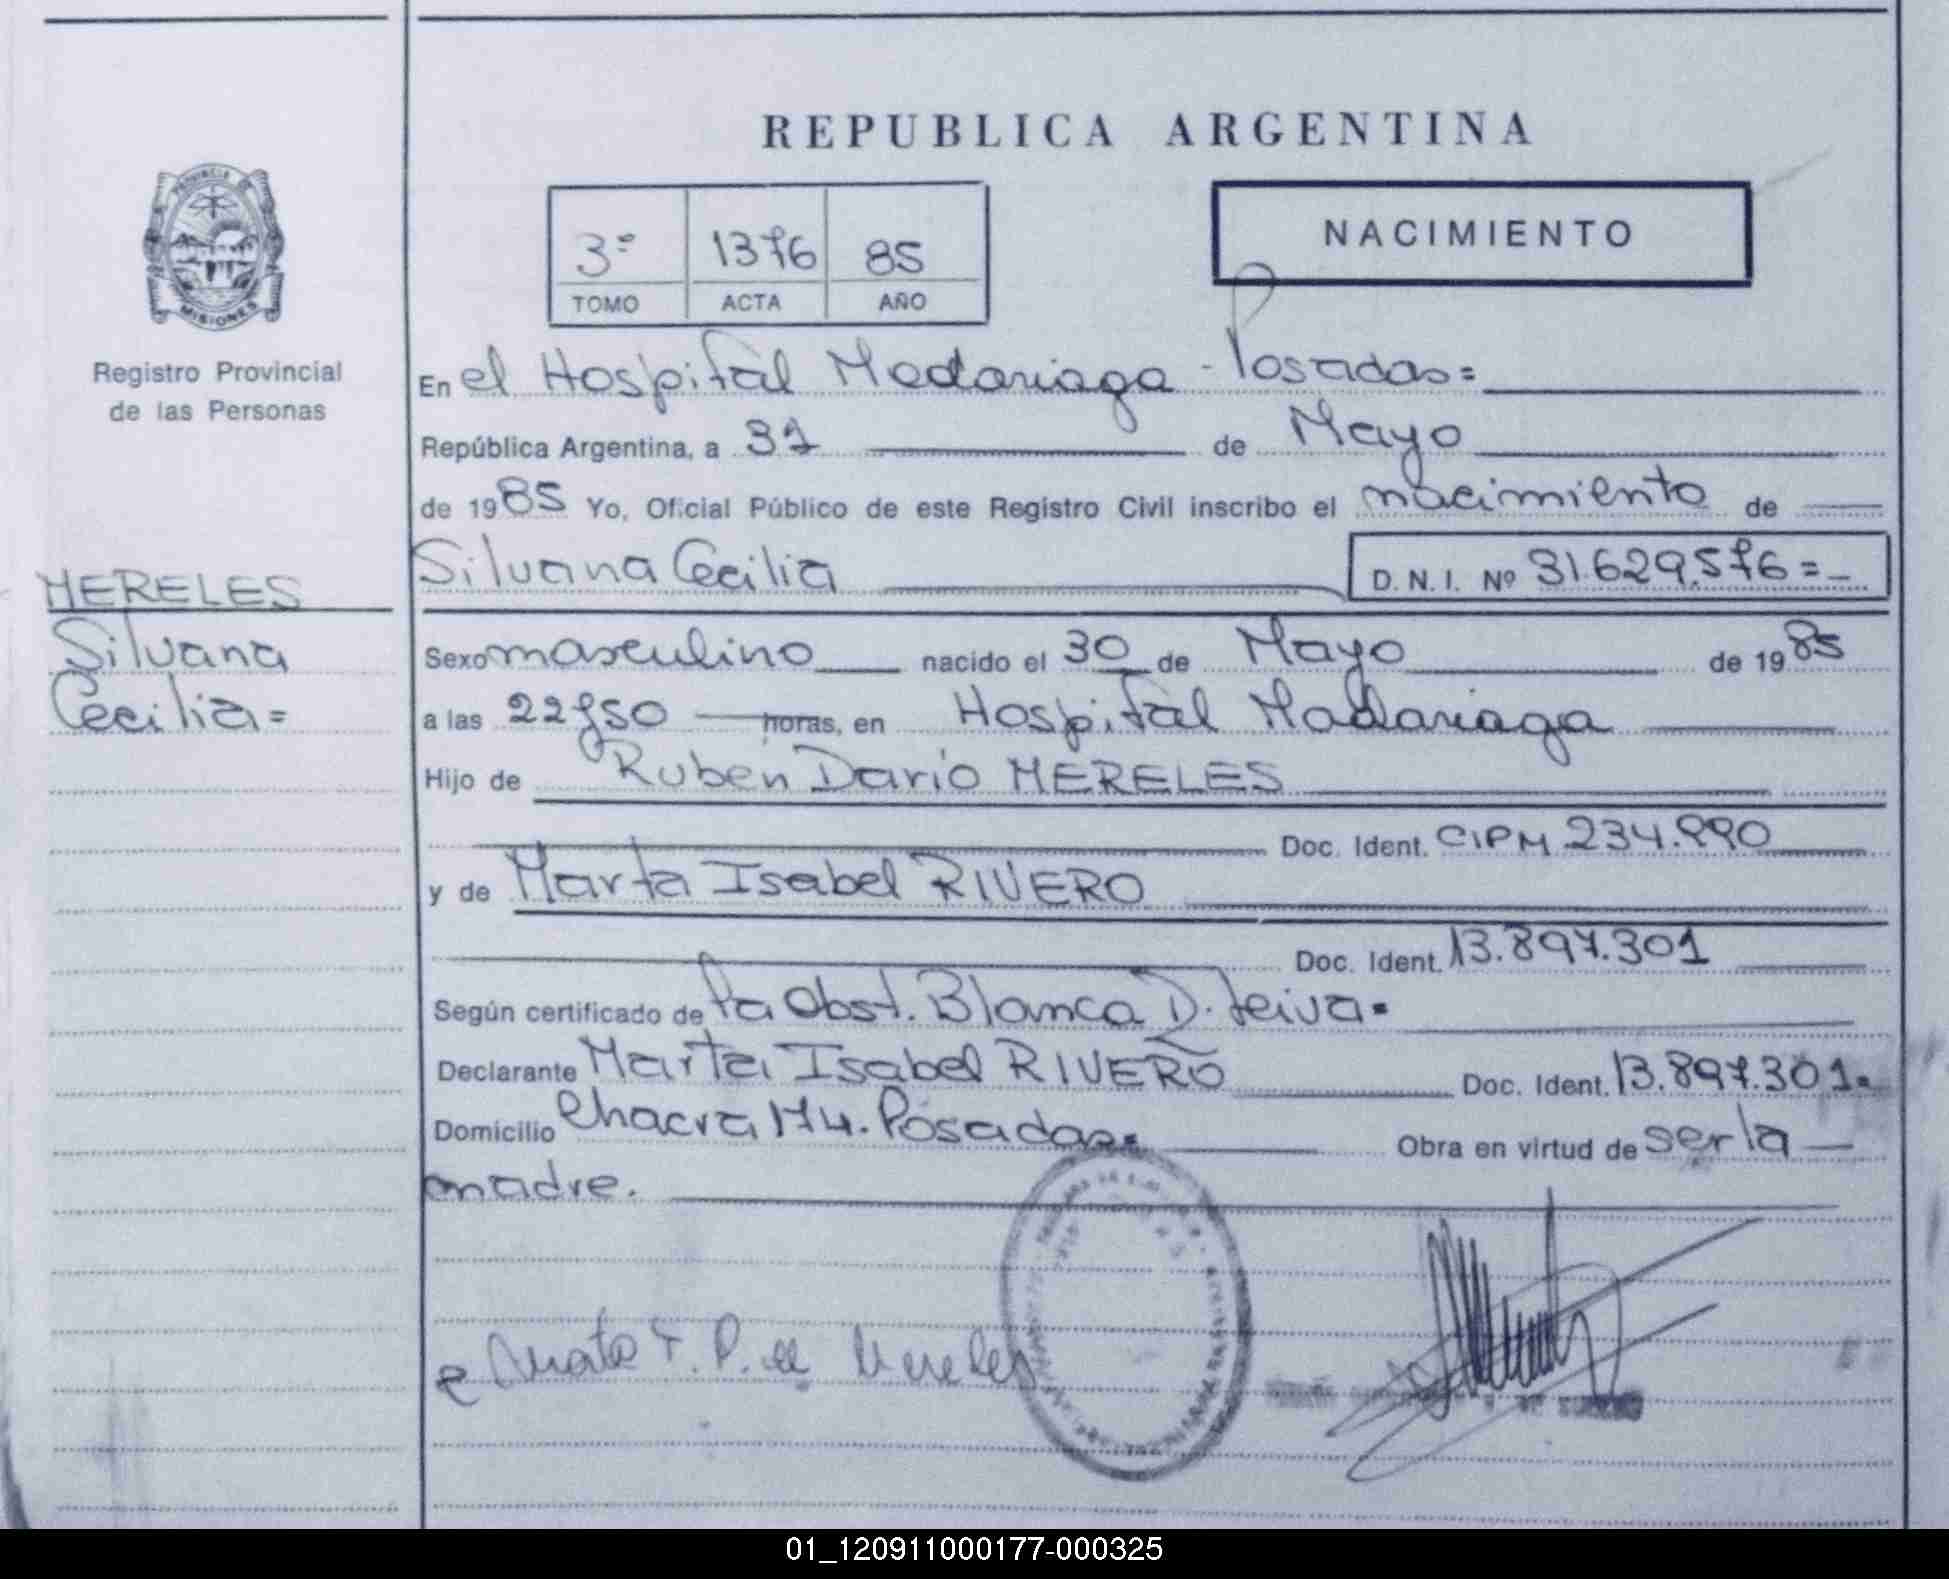 REPUBLICA ARGENTINA
PROVINCIA DE
MISIONES
Registro Provincial
de las Personas
3º 1376 85
TOMO ACTA AÑO
NACIMIENTO
En el Hospital Madariaga - Posadas=
República Argentina, a 31 de Mayo
de 1985 Yo, Oficial Público de este Registro Civil inscribo el nacimiento de
MERELES
Silvana
Cecilia=
Silvana Cecilia D.N.I. Nº 31.629.576=
Sexo masculino nacido el 30 de Mayo de 1985
a las 22 y 50 horas, en Hospital Madariaga
Hijo de Ruben Dario MERELES
Doc. Ident. CIPM 234.990
y de Marta Isabel RIVERO
Doc. Ident. 13.897.301
Según certificado de la Obst. Blanca D. Leiva=
Declarante Marta Isabel RIVERO Doc. Ident. 13.897.301=
Domicilio Chacra 174. Posadas= Obra en virtud de ser la
madre.
01_120911000177-000325